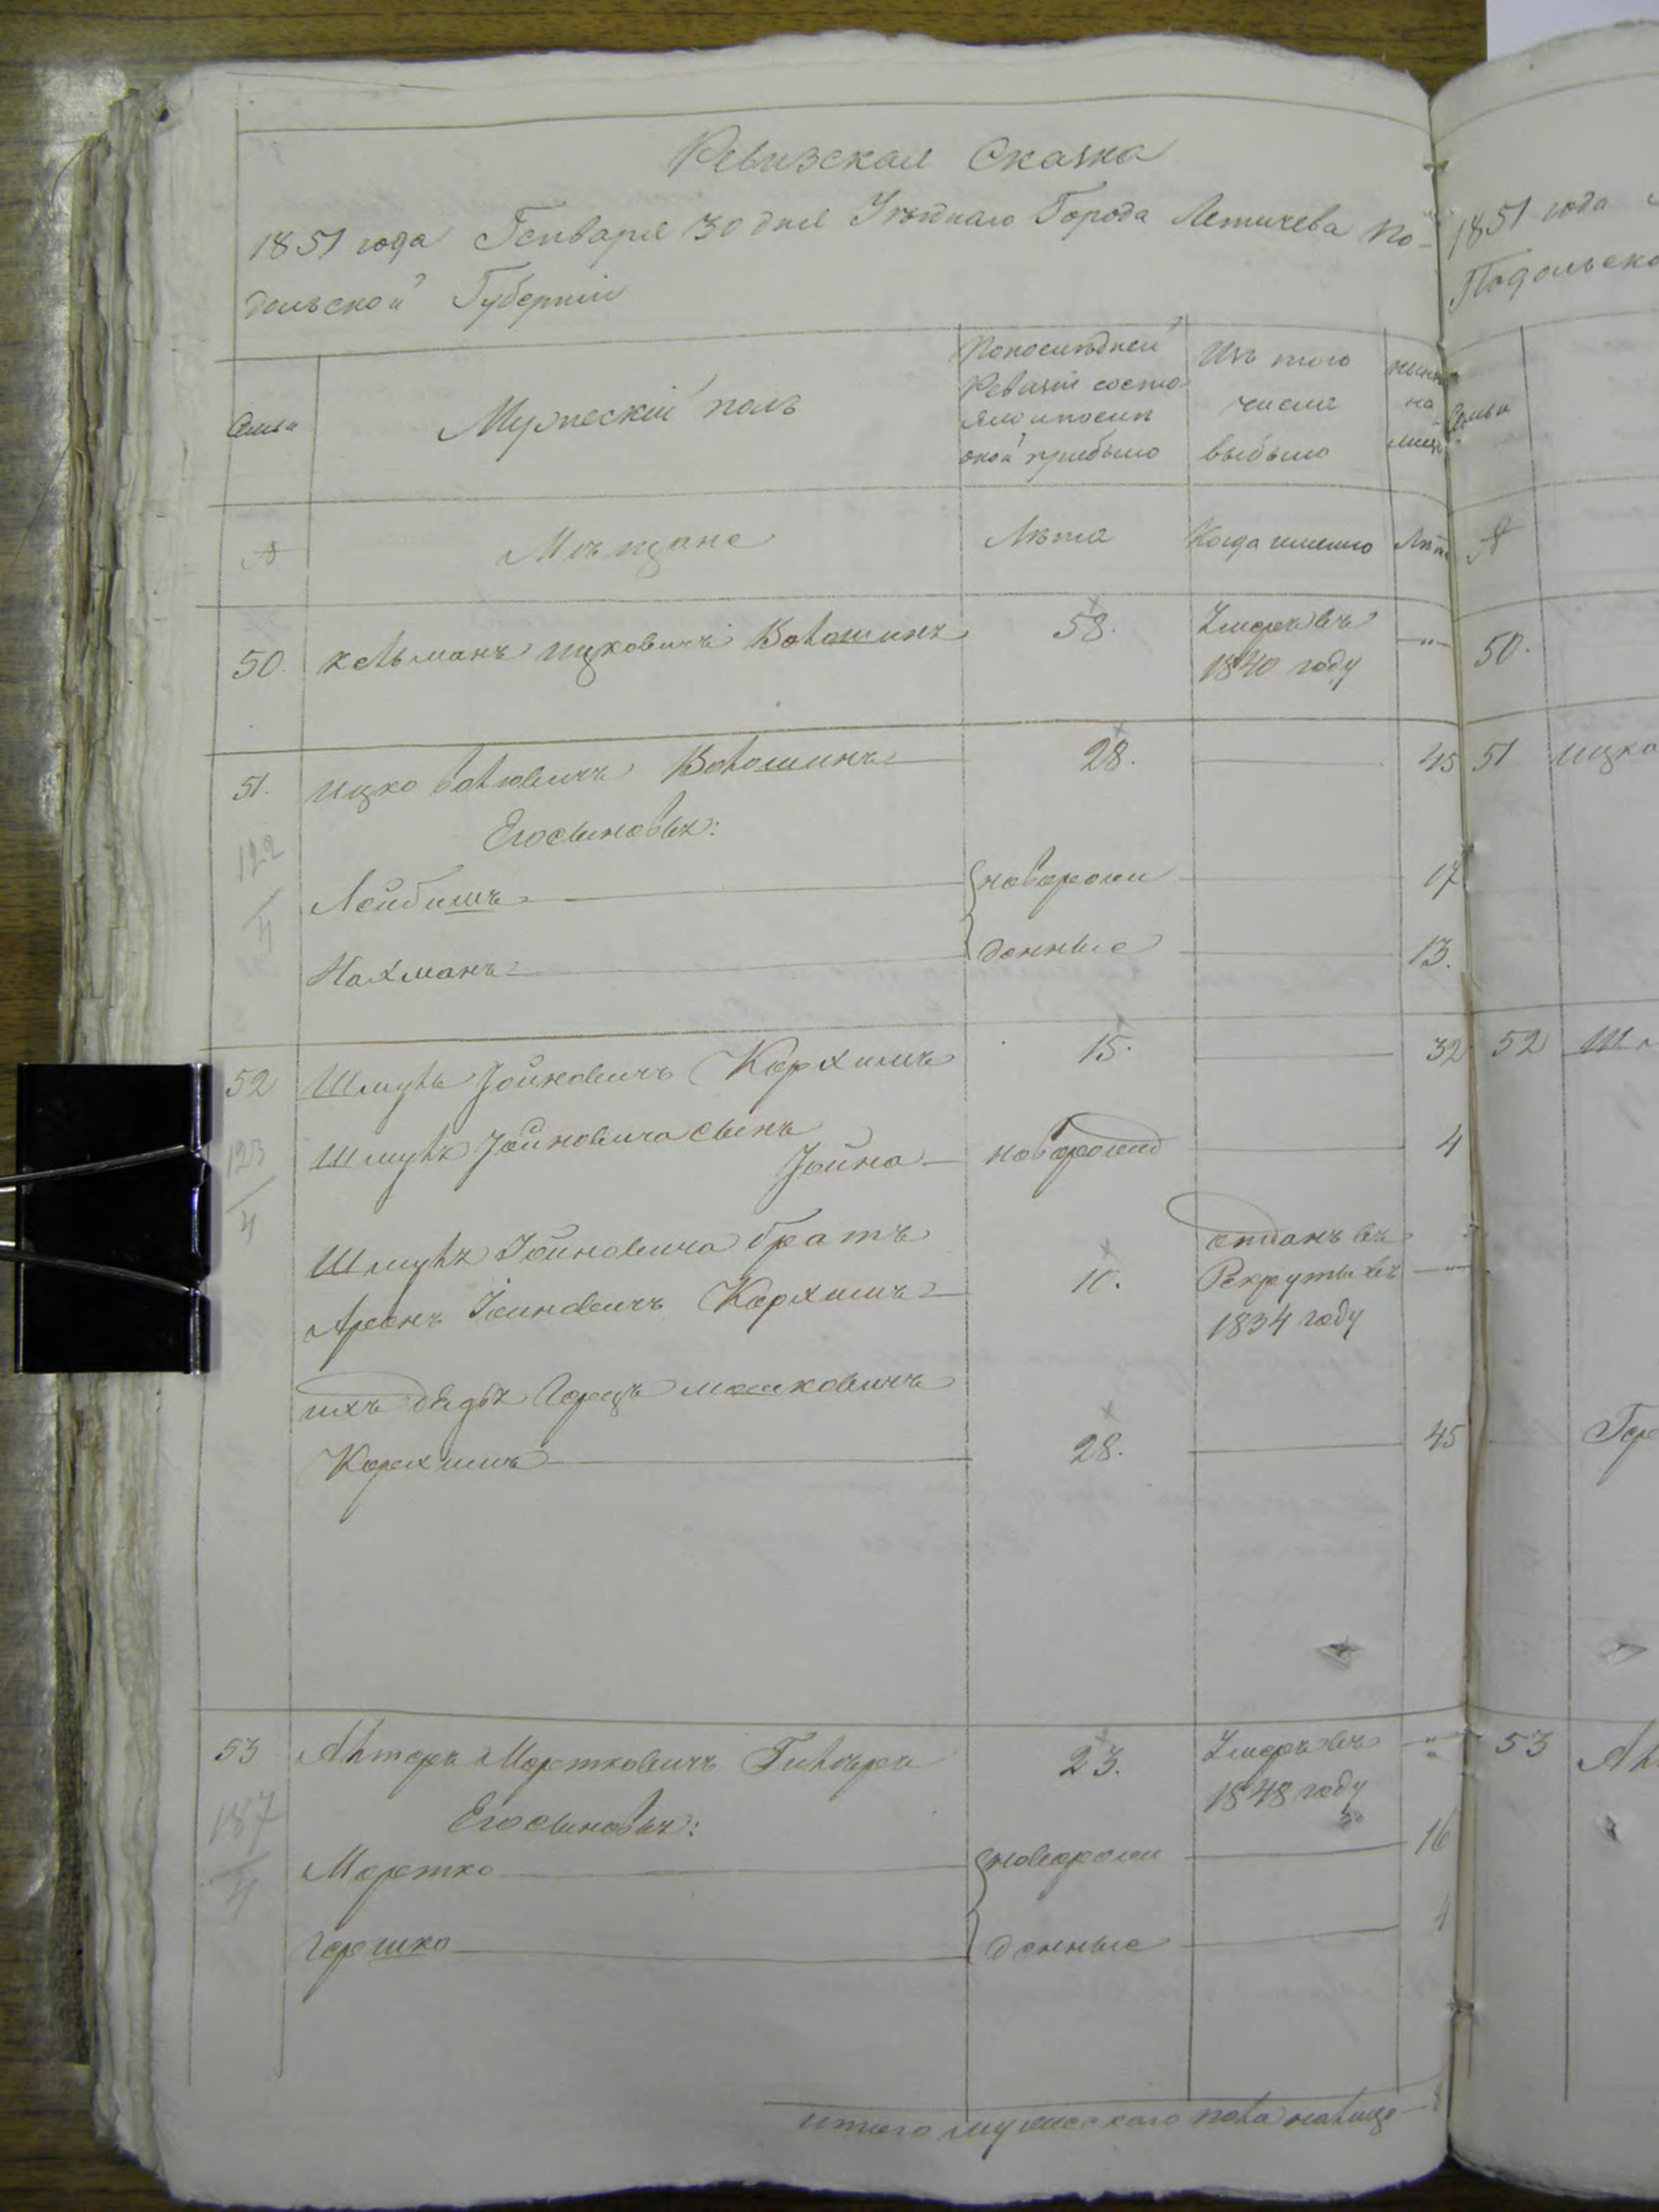 Ревизская Сказка
1851 года Генваря 30 дня Уѣзднаго Города Летичева По-
дольской Губерніи
Семьи
Мужескій полъ
По последней
Ревизіи состо
яло и после
оной прибыло
Изъ того
числа
выбыло
ныне
на
лицо
№
Мѣщане
Лѣта
Когда именно
Лѣта
50. Кельманъ Ицковичъ Волошинъ 58. Умеръ въ
1840 году
51. Ицко Волковичъ Волошинъ 28. 45
Его сыновья:
122
4
Лейбишъ новорож 17
Нахманъ денные 13.
52 Шмуль Іойновичъ 15. 32
123
4
Шмуля Іойновича сынъ
Іойна новорожд 4
Шмуля Іойновича братъ
Аронъ Іойновичъ 10.
отданъ въ
Рекруты въ
1834 году
ихъ дядя Герцъ Мошковичъ
28. 45
53 Альтеръ Мортковичъ 23. Умеръ въ
1848 году
187
4
Его сыновья:
Мортко новорож 16
Гершко денные 4
итого мужескаго пола налицо
1851 года
Подольско
Семьи
№
50.
51 Ицко
52 Шм
Гер
53 Ал